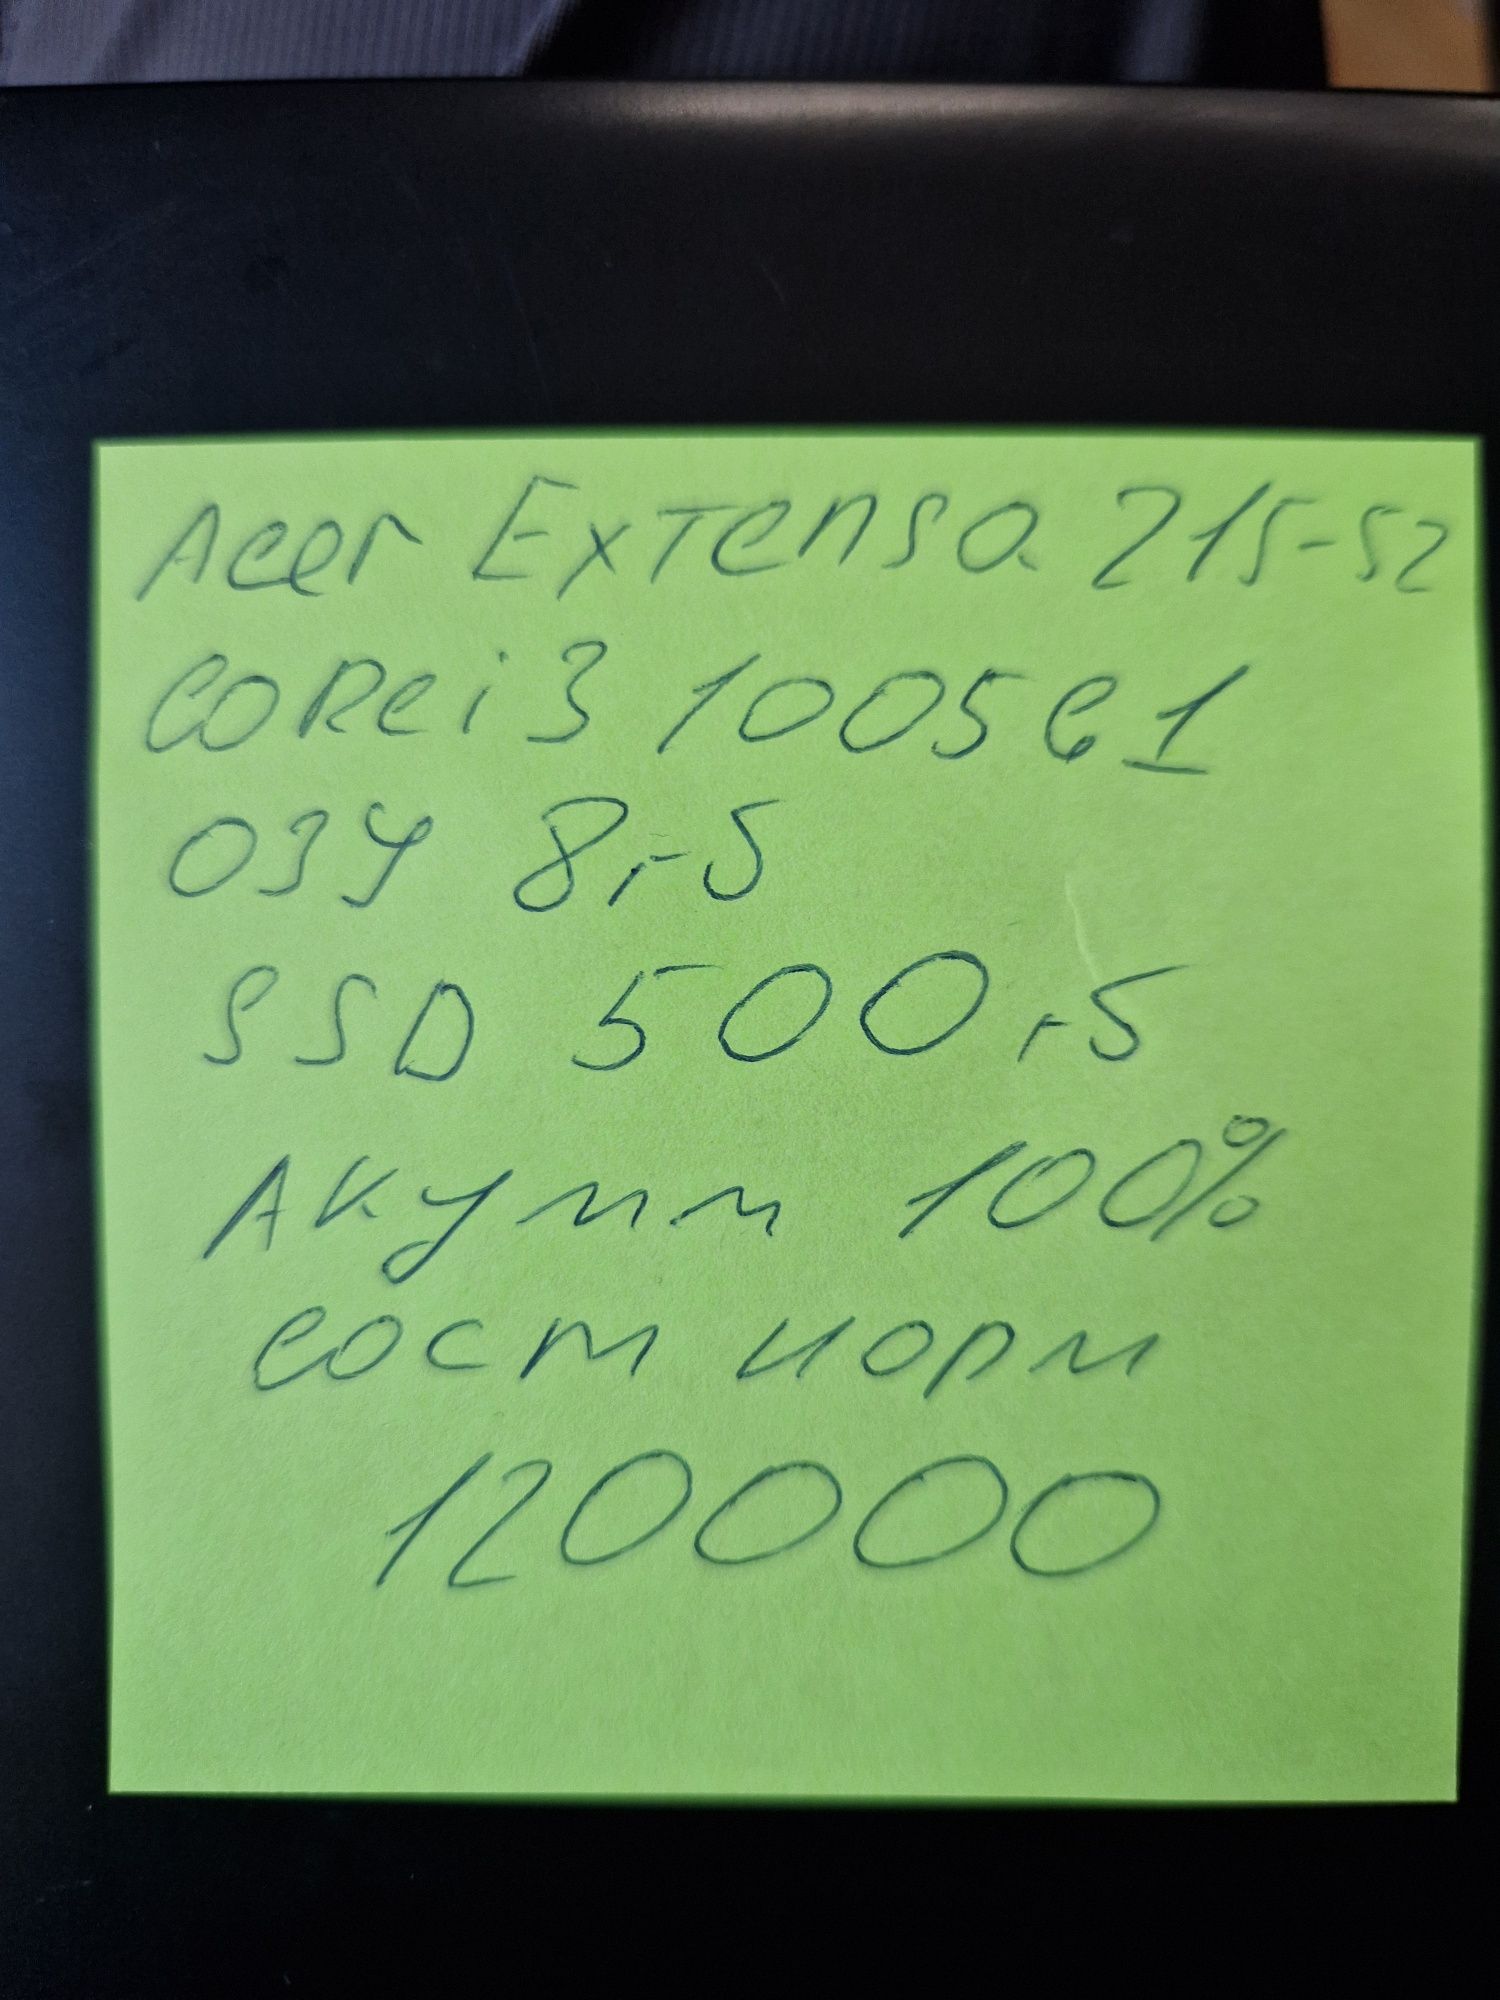 Acer Extensa 215-52
Core i3 1005G1
ОЗУ 8 гБ
SSD 500 гБ
Акумм 100%
Сост норм
120000